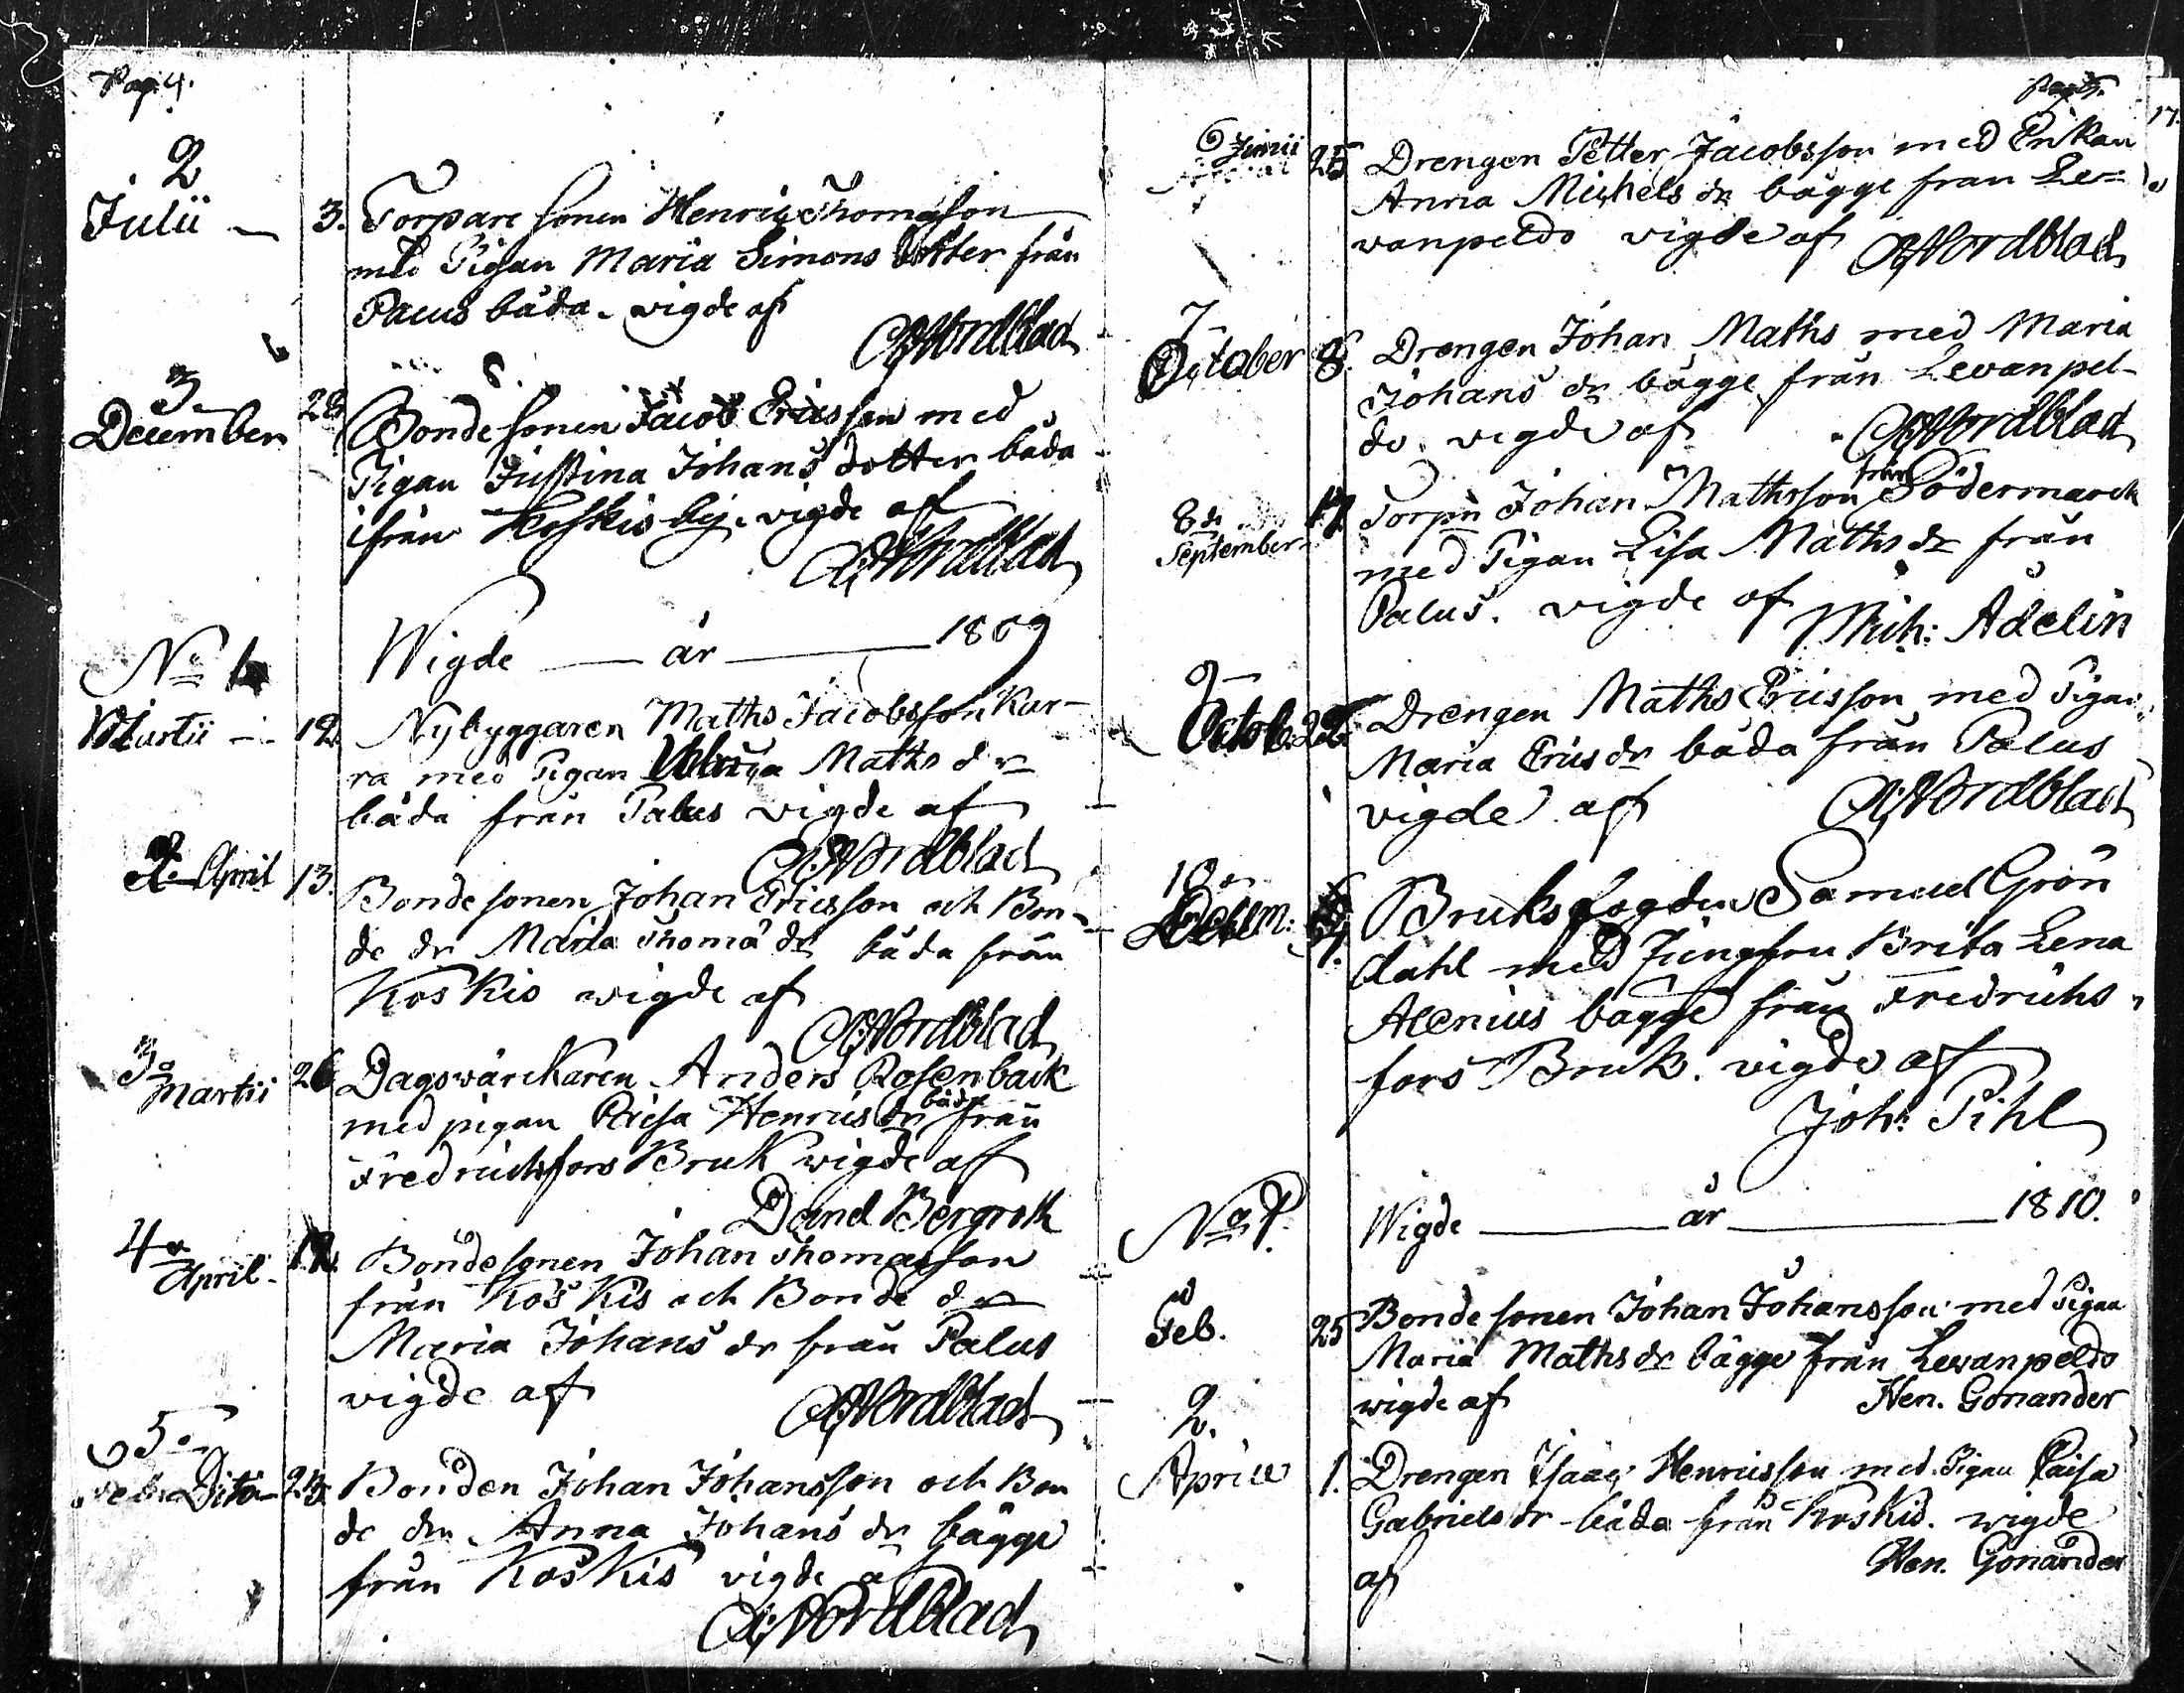 Pag. 4.
2
Julii — 3. Torpare sonen Henric Thomasson
med Pigan Maria Simons dotter från
Palus båda. wigde af
Nordblad
3
December 28 Bonde sonen Jacob Ericsson med
Pigan Justina Johans dotter båda
ifrån Koskis by. wigde af
Nordblad
Wigde — år — 1809
No 1
Martii — 12. Nybyggaren Maths Jacobsson Kur-
ra med Pigan Maths dr
båda från Palus wigde af
Nordblad
2. April 13. Bonde sonen Johan Ericsson och Bon-
de dr Maria Thomä dr båda från
Koskis wigde af
Nordblad
3
Martii 26 Dagswärckaren Anders Rosenback
med pigan Caisa Henrics dr både från
Fredrichsfors Bruk wigde af
Daniel Bergroth
4
April 12. Bondesonen Johan Thomasson
från Koskis och Bonde dr
Maria Johans dr från Palus
vigde af
Nordblad
5
Dito — 23. Bonden Johan Johansson och Bon
de dr Anna Johans dr bägge
från Koskis vigde af
Nordblad
Pag. 5.
17.
6 Junii 25 Drengen Petter Jacobsson med Enkan
Anna Michels dr bägge från Le-
vanpeldo vigde af
Nordblad
7
October 8. Drengen Johan Maths med Maria
Johans dr bägge från Levanpel-
do. vigde af
Nordblad
8de
September 17 Torpn Johan Mathsson från Södermarck
med Pigan Lisa Maths dr från
Palus. vigde af
Mich: Adelin
9
Octob. 22. Drengen Maths Ericsson med Pigan
Maria Erics dr båda från Palus
vigde af
Nordblad
10
Decem: Bruksfogden Samuel Grön
dahl med Jungfru Brita Lena
Alenius bägge från Fredrichs-
fors Bruk. vigde af
Joh: Pihl
No 1. Wigde — år — 1810.
Feb. 25 Bonde sonen Johan Johansson med Pigan
Maria Maths dr bägge från Levanpeldo
wigde af
Hen. Gonander
2.
April 1. Drengen Isaac Henricsson med Pigan Caisa
Gabriels dr båda från Koskis. wigde
af
Hen. Gonander